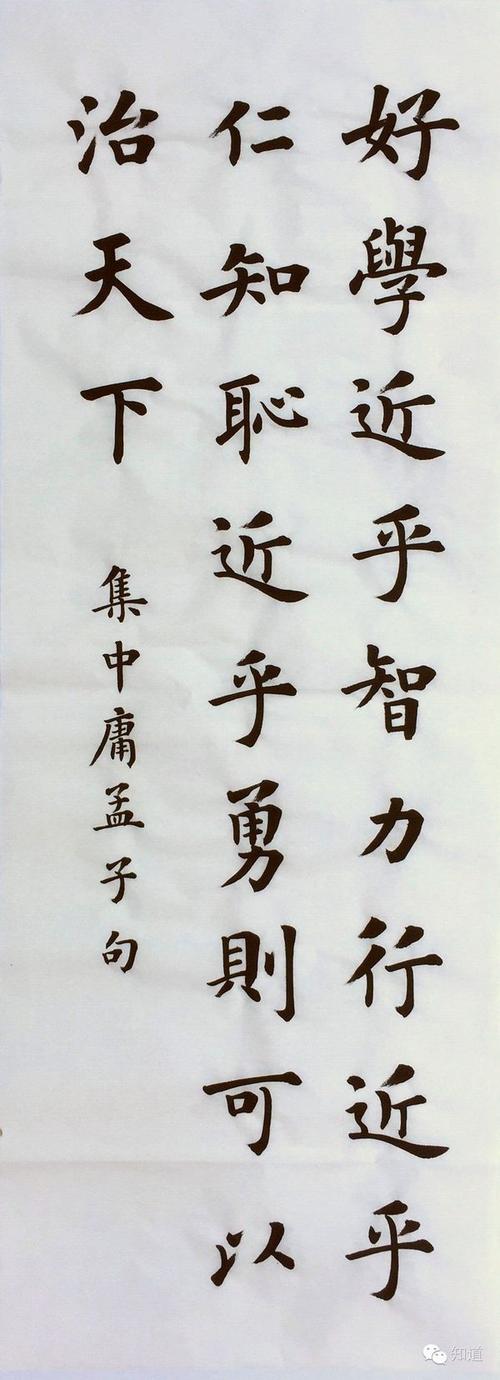 好學近乎智力行近乎
仁知恥近乎勇則可以
治天下
集中庸孟子句
知道